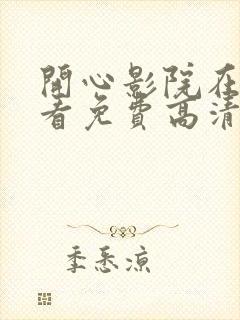 開心影院在
看免費高清
季悉涼